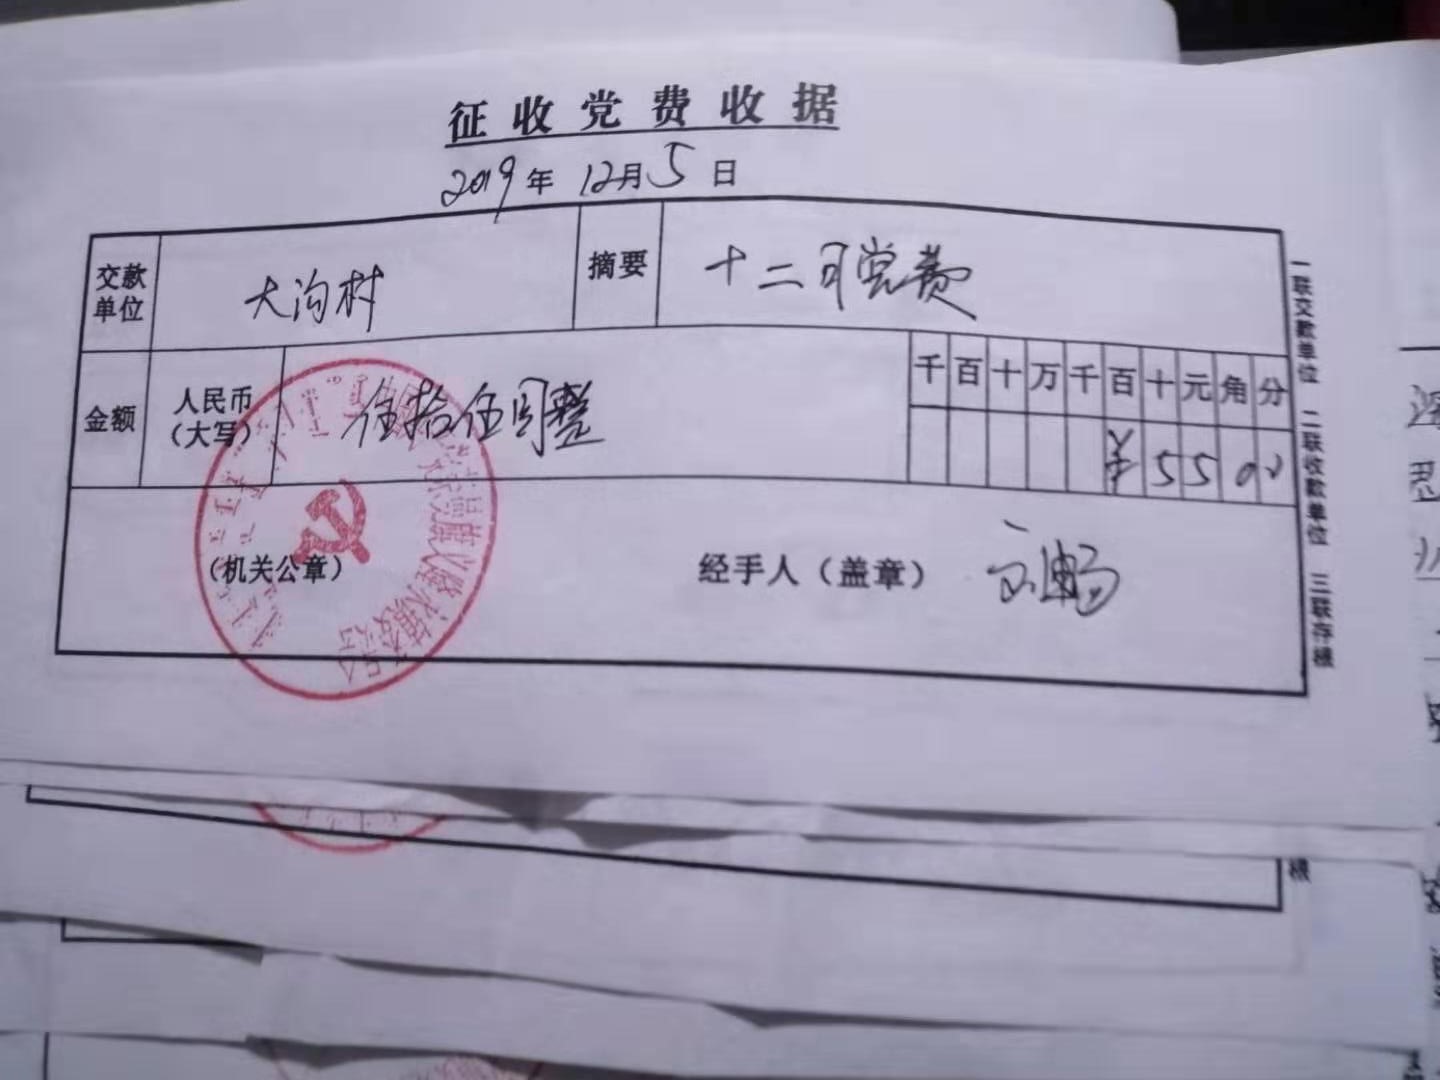 征收党费收据
2019年 12月5日
交款单位 大沟村 摘要 十二月党费
金额 人民币（大写） 伍拾伍圆整 千 百 十 万 千 百 十 元 角 分
¥ 5 5 0 0
（机关公章） 经手人（盖章） 刘畅
一联交款单位 二联收款单位 三联存根
根